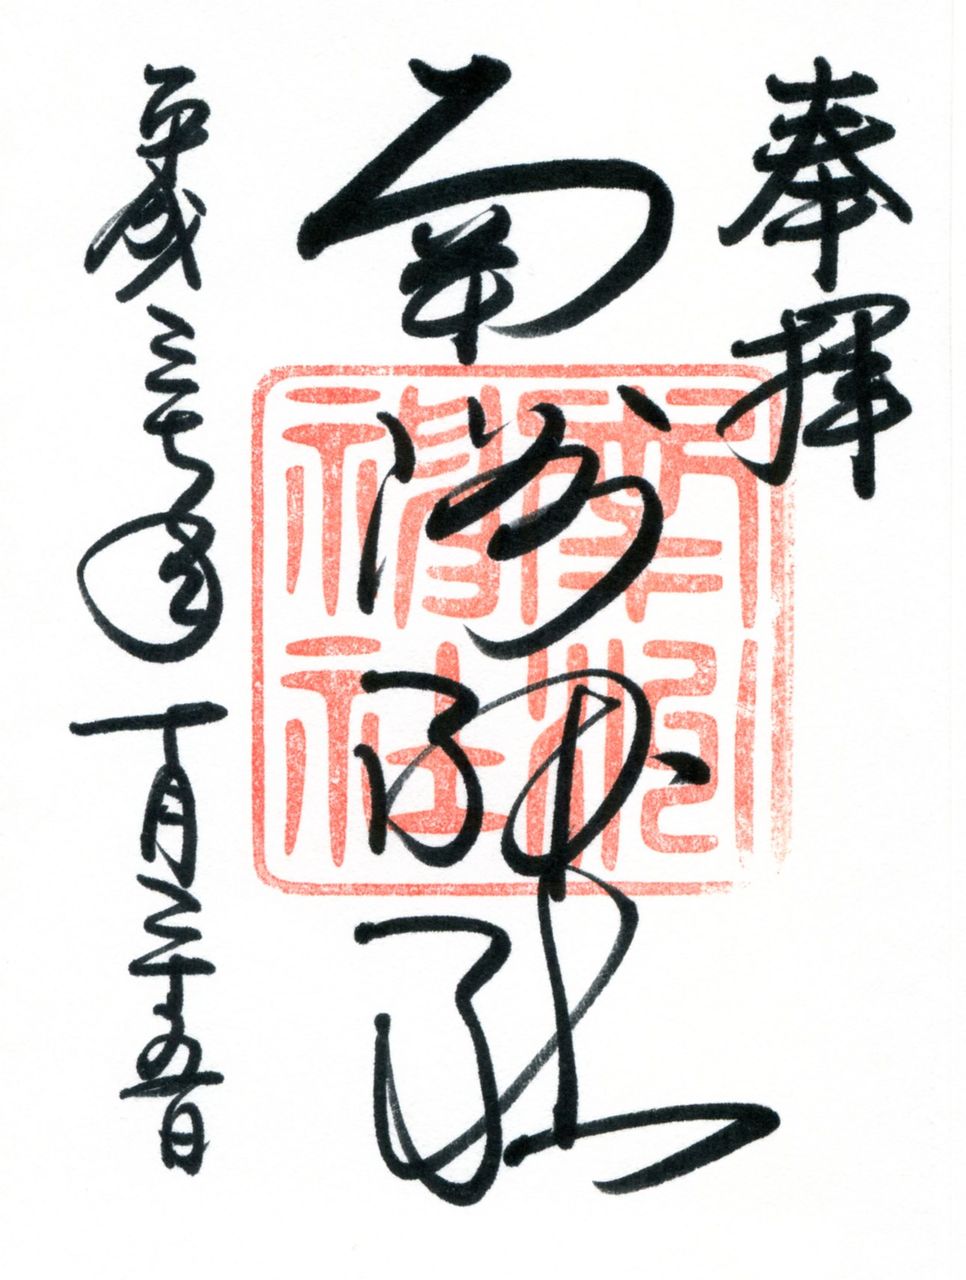 奉拝
南洲神社
平成二十七年十月二十五日
南洲
神社